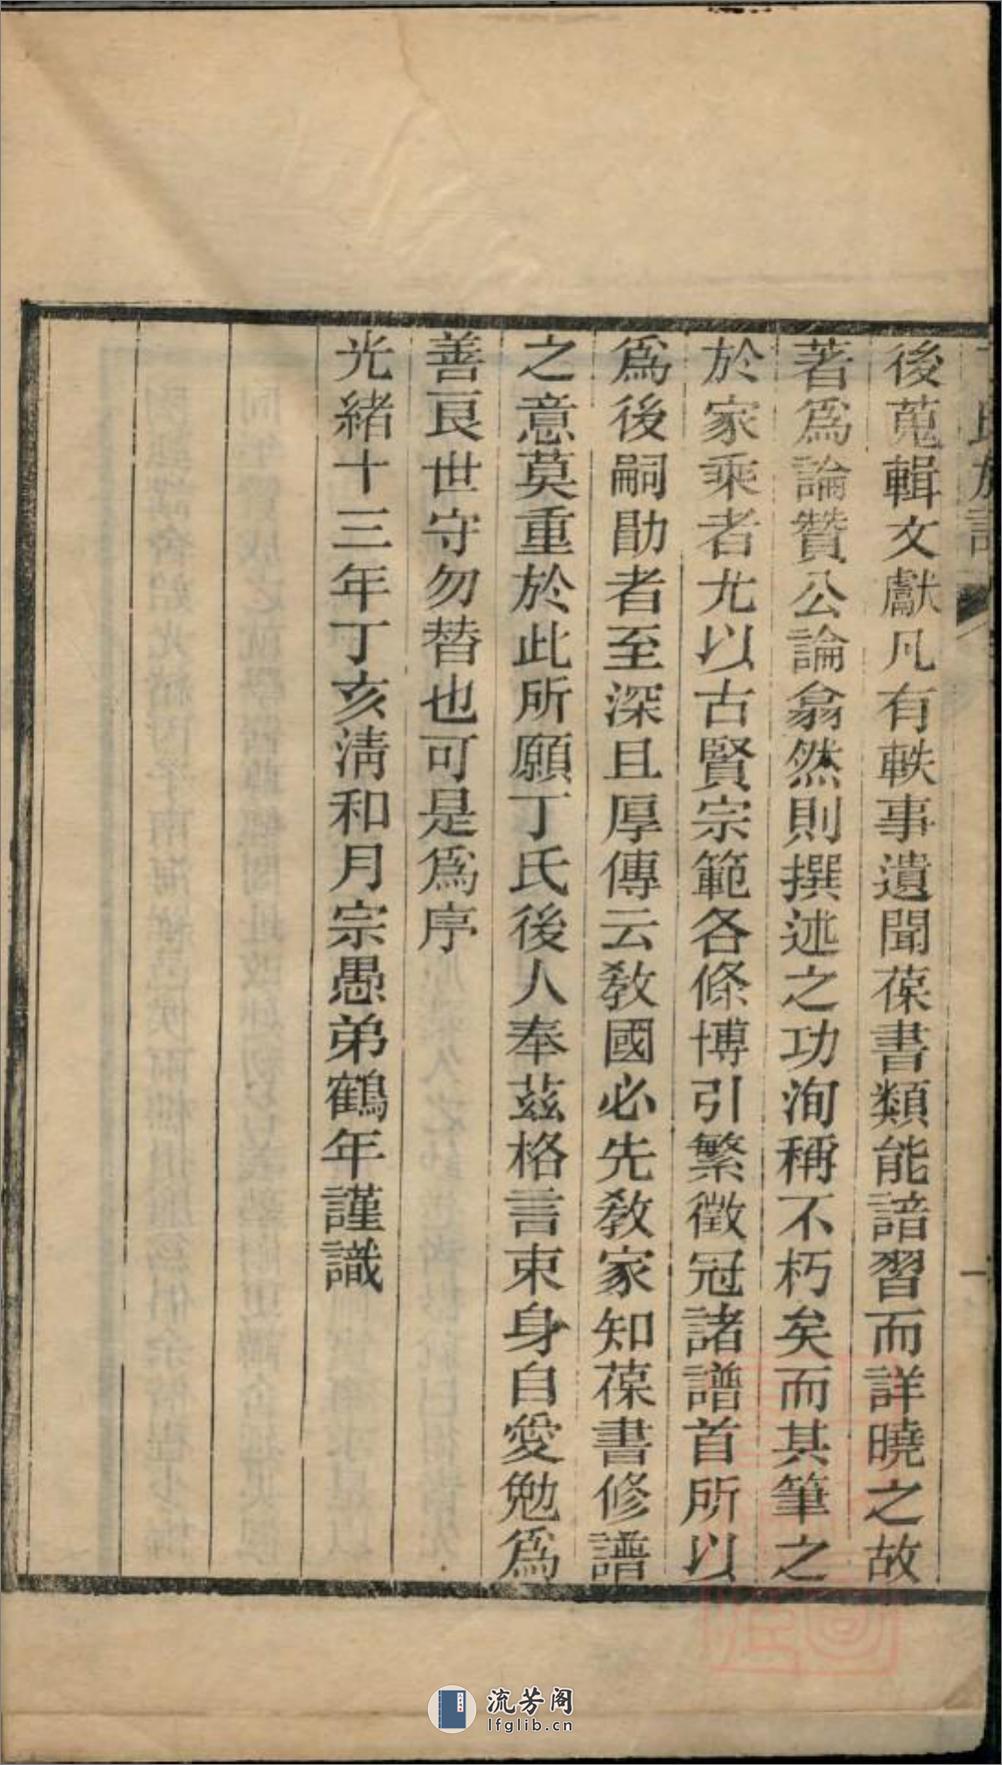 後蒐輯文獻凡有軼事遺聞葆書類能諳習而詳曉之故
著爲論贊公論翕然則撰述之功洵稱不朽矣而其筆之
於家乘者尤以古賢宗範各條博引繁徵冠諸譜首所以
爲後嗣勖者至深且厚傳云敎國必先敎家知葆書修譜
之意莫重於此所願丁氏後人奉茲格言束身自愛勉爲
善良世守勿替也可是爲序
光緒十三年丁亥淸和月宗愚弟鶴年謹識
流芳阁
lfglib.cn